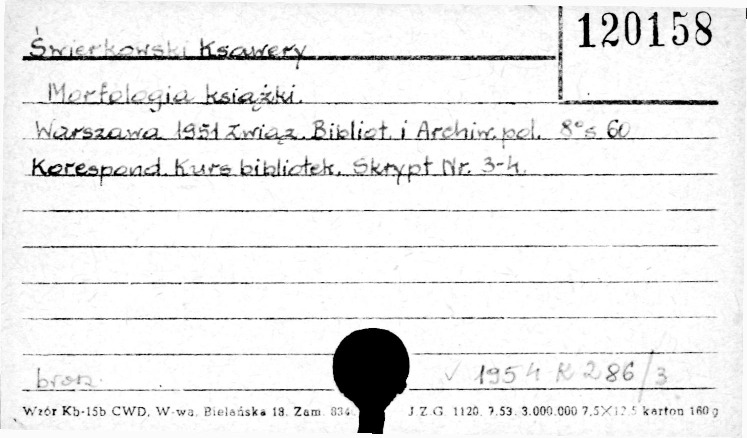 120158
Świerkowski Ksawery
Morfologia książki.
Warszawa 1951 Związ. Bibliot. i Archiw. pol. 8° s 60
Korespond. Kurs bibliotek. Skrypt Nr. 3-4.
brosz. √ 1954 K 286/3
Wzór Kb-15b CWD, W-wa, Bielańska 18. Zam. 834 J.Z.G. 1120. 7.53. 3.000.000 7,5×12,5 karton 160 g